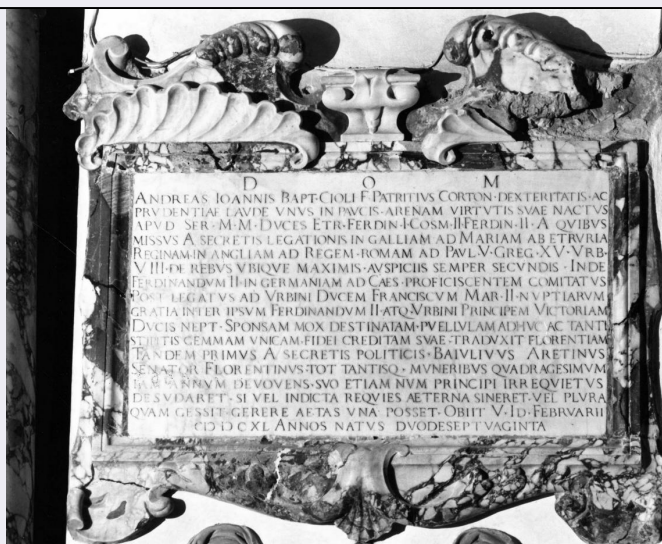 D O M
ANDREAS IOANNIS BAPT·CIOLI F·PATRITIVS CORTON·DEXTERITATIS·AC
PRVDENTIAE LAVDE VNVS IN PAVCIS·ARENAM VIRTVTIS SVAE NACTVS
APVD SER·M·M·DVCES ETR·FERDIN·I·COSM·II·FERDIN·II·A QVIBVS
MISSVS A SECRETIS LEGATIONIS IN GALLIAM AD MARIAM AB ETRVRIA
REGINAM·IN ANGLIAM AD REGEM·ROMAM AD PAVL·V·GREG·XV·VRB·
VIII·DE REBVS VBIQVE MAXIMIS·AVSPICIIS SEMPER SECVNDIS·INDE
FERDINANDVM II·IN GERMANIAM AD CAES·PROFICISCENTEM COMITATVS
POST LEGATVS AD VRBINI DVCEM FRANCISCVM MAR·II·NVPTIARVM
GRATIA INTER IPSVM FERDINANDVM II·ATQ·VRBINI PRINCIPEM VICTORIAM
DVCIS NEPT·SPONSAM MOX DESTINATAM·PVELLVLAM ADHVC AC TANTI
STIPITIS GEMMAM VNICAM·FIDEI CREDITAM SVAE·TRADVXIT FLORENTIAM
TANDEM PRIMVS A SECRETIS POLITICIS·BAIVLIVVS ARETINVS
SENATOR FLORENTINVS·TOT TANTISQ·MVNERIBVS QVADRAGESIMVM
ANNVM DEVOVENS·SVO ETIAM NVM PRINCIPI IRREQVIETVS
DESVDARET·SI VEL INDICTA REQVIES AETERNA SINERET·VEL PLVRA
QVAM GESSIT·GERERE AETAS VNA POSSET·OBIIT V·ID·FEBRVARII
CIƆ IƆ CXL ANNOS NATVS DVODESEPTVAGINTA